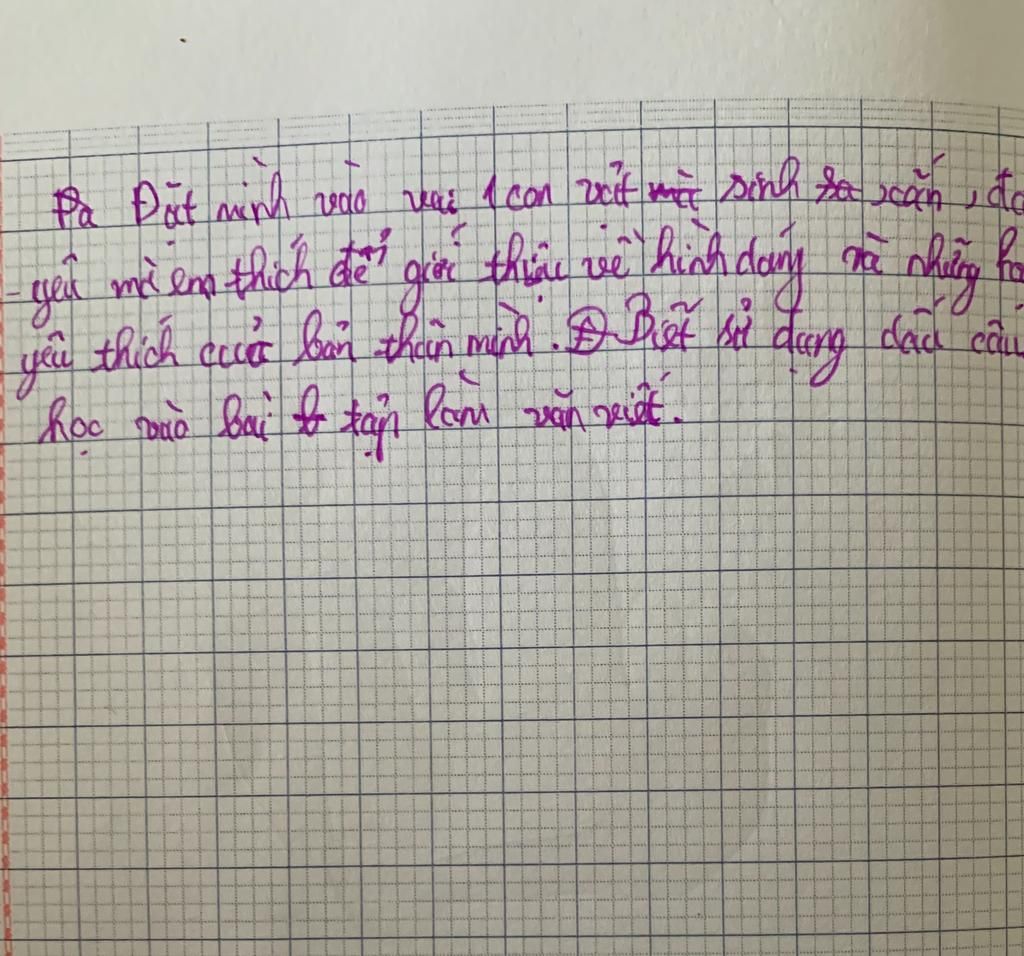 Đặt mình vào vai 1 con vật sinh xắn, đá
yêu mà em thích để giới thiệu về hình dáng và những ho
yêu thích của bản thân mình. Biết sử dụng dấu câu
học vào bài tập làm văn viết.